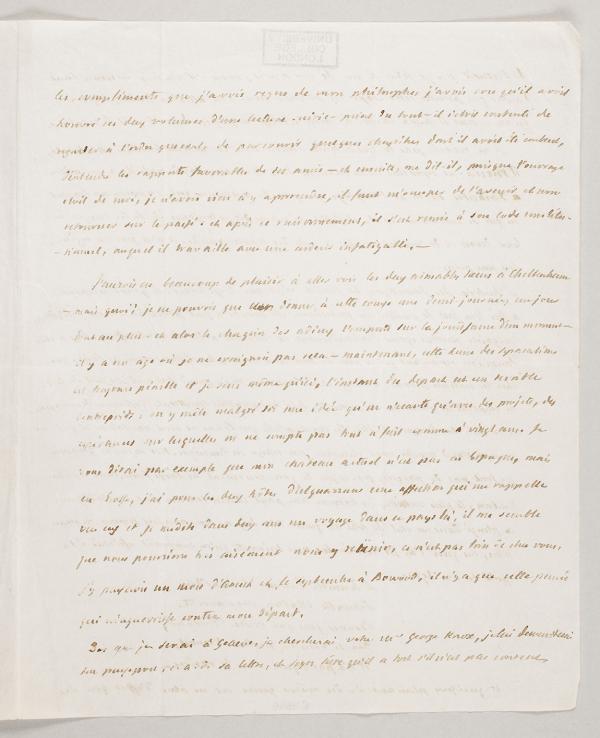 les compliments que j'avois reçus de mon philosophe, j'avois cru qu'il avoit
honoré ces deux volumes d'une lecture suivie - point du tout - il s'étoit contenté de
de parcourir quelques chapitres dont il avoit été content,
d'entendre les rapports favorables de ses amis - et ensuite, me dit-il, puisque l'ouvrage
étoit de moi, je n'avois rien à y apprendre, il faut m'occuper de l'avenir et non
retourner sur le passé - et après ce raisonnement, il s'est remis à son code constitu-
-tionnel, auquel il travaille avec une ardeur infatigable. -
J'aurois eu beaucoup de plaisir à aller voir les deux aimables sœurs à Cheltenham
- mais quoi! je ne pouvois que donner à cette course une demi journée, un jour
tout au plus - et alors le chagrin des adieux l'emporte sur la jouissance d'un moment -
il y a un âge où je ne craignois pas cela - maintenant, cette des séparations
est toujours pénible et je sens même qu'ici, l'instant du départ est un terrible
; on y mêle malgré soi une idée qu'on n'écarte qu'avec des projets, des
espérances sur lesquelles on ne compte pas tout à fait comme à vingt ans. Je
vous dirai par exemple que mon château actuel n'est pas en Espagne, mais
en Ecosse, j'ai pour les deux hôtes une affection qui me rappelle
vers eux et je médite dans deux ans un voyage dans ce pays là, il me semble
que nous pourrions très aisément nous y réunir, ce n'est pas loin de chez vous,
J'y passerois un mois d'Aoust et le septembre à Bowood, il n'y a que cette pensée
qui m'aguerrisse contre mon départ.
Dès que je serai à Genève, je chercherai votre Mr George Knox, je lui
son passeport de sa lettre, et soyez sûre qu'il a tort s'il n'est pas content,
UNIVERSITY
COLLEGE
LONDON